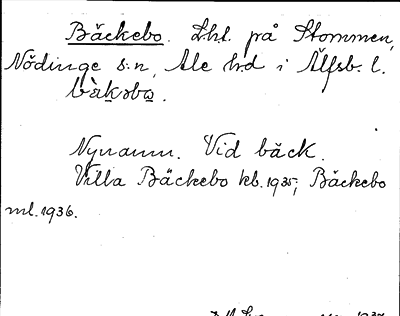 Bäckebo. Lhl. på Stommen,
Nödinge s:n, Ale hd i Älfsb. l.
bàkəbo.
Nynamn. Vid bäck.
Villa Bäckebo kb. 1935; Bäckebo
ml. 1936.